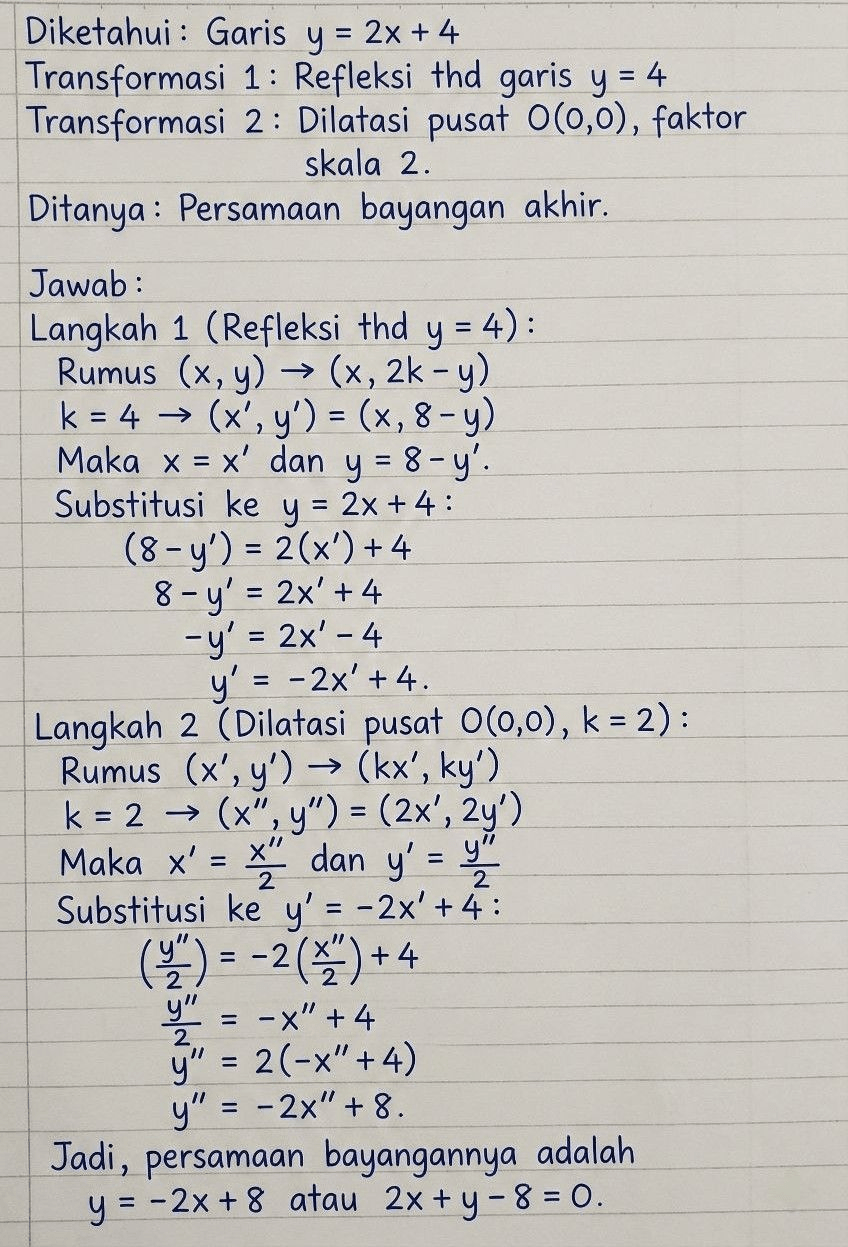 Diketahui : Garis y = 2x + 4
Transformasi 1 : Refleksi thd garis y = 4
Transformasi 2 : Dilatasi pusat O(0,0), faktor
skala 2.
Ditanya : Persamaan bayangan akhir.
Jawab :
Langkah 1 (Refleksi thd y = 4) :
Rumus (x, y) → (x, 2k - y)
k = 4 → (x', y') = (x, 8 - y)
Maka x = x' dan y = 8 - y'.
Substitusi ke y = 2x + 4 :
(8 - y') = 2(x') + 4
8 - y' = 2x' + 4
-y' = 2x' - 4
y' = -2x' + 4.
Langkah 2 (Dilatasi pusat O(0,0), k = 2) :
Rumus (x', y') → (kx', ky')
k = 2 → (x'', y'') = (2x', 2y')
Maka x' = x''/2 dan y' = y''/2
Substitusi ke y' = -2x' + 4 :
(y''/2) = -2(x''/2) + 4
y''/2 = -x'' + 4
y'' = 2(-x'' + 4)
y'' = -2x'' + 8.
Jadi, persamaan bayangannya adalah
y = -2x + 8 atau 2x + y - 8 = 0.